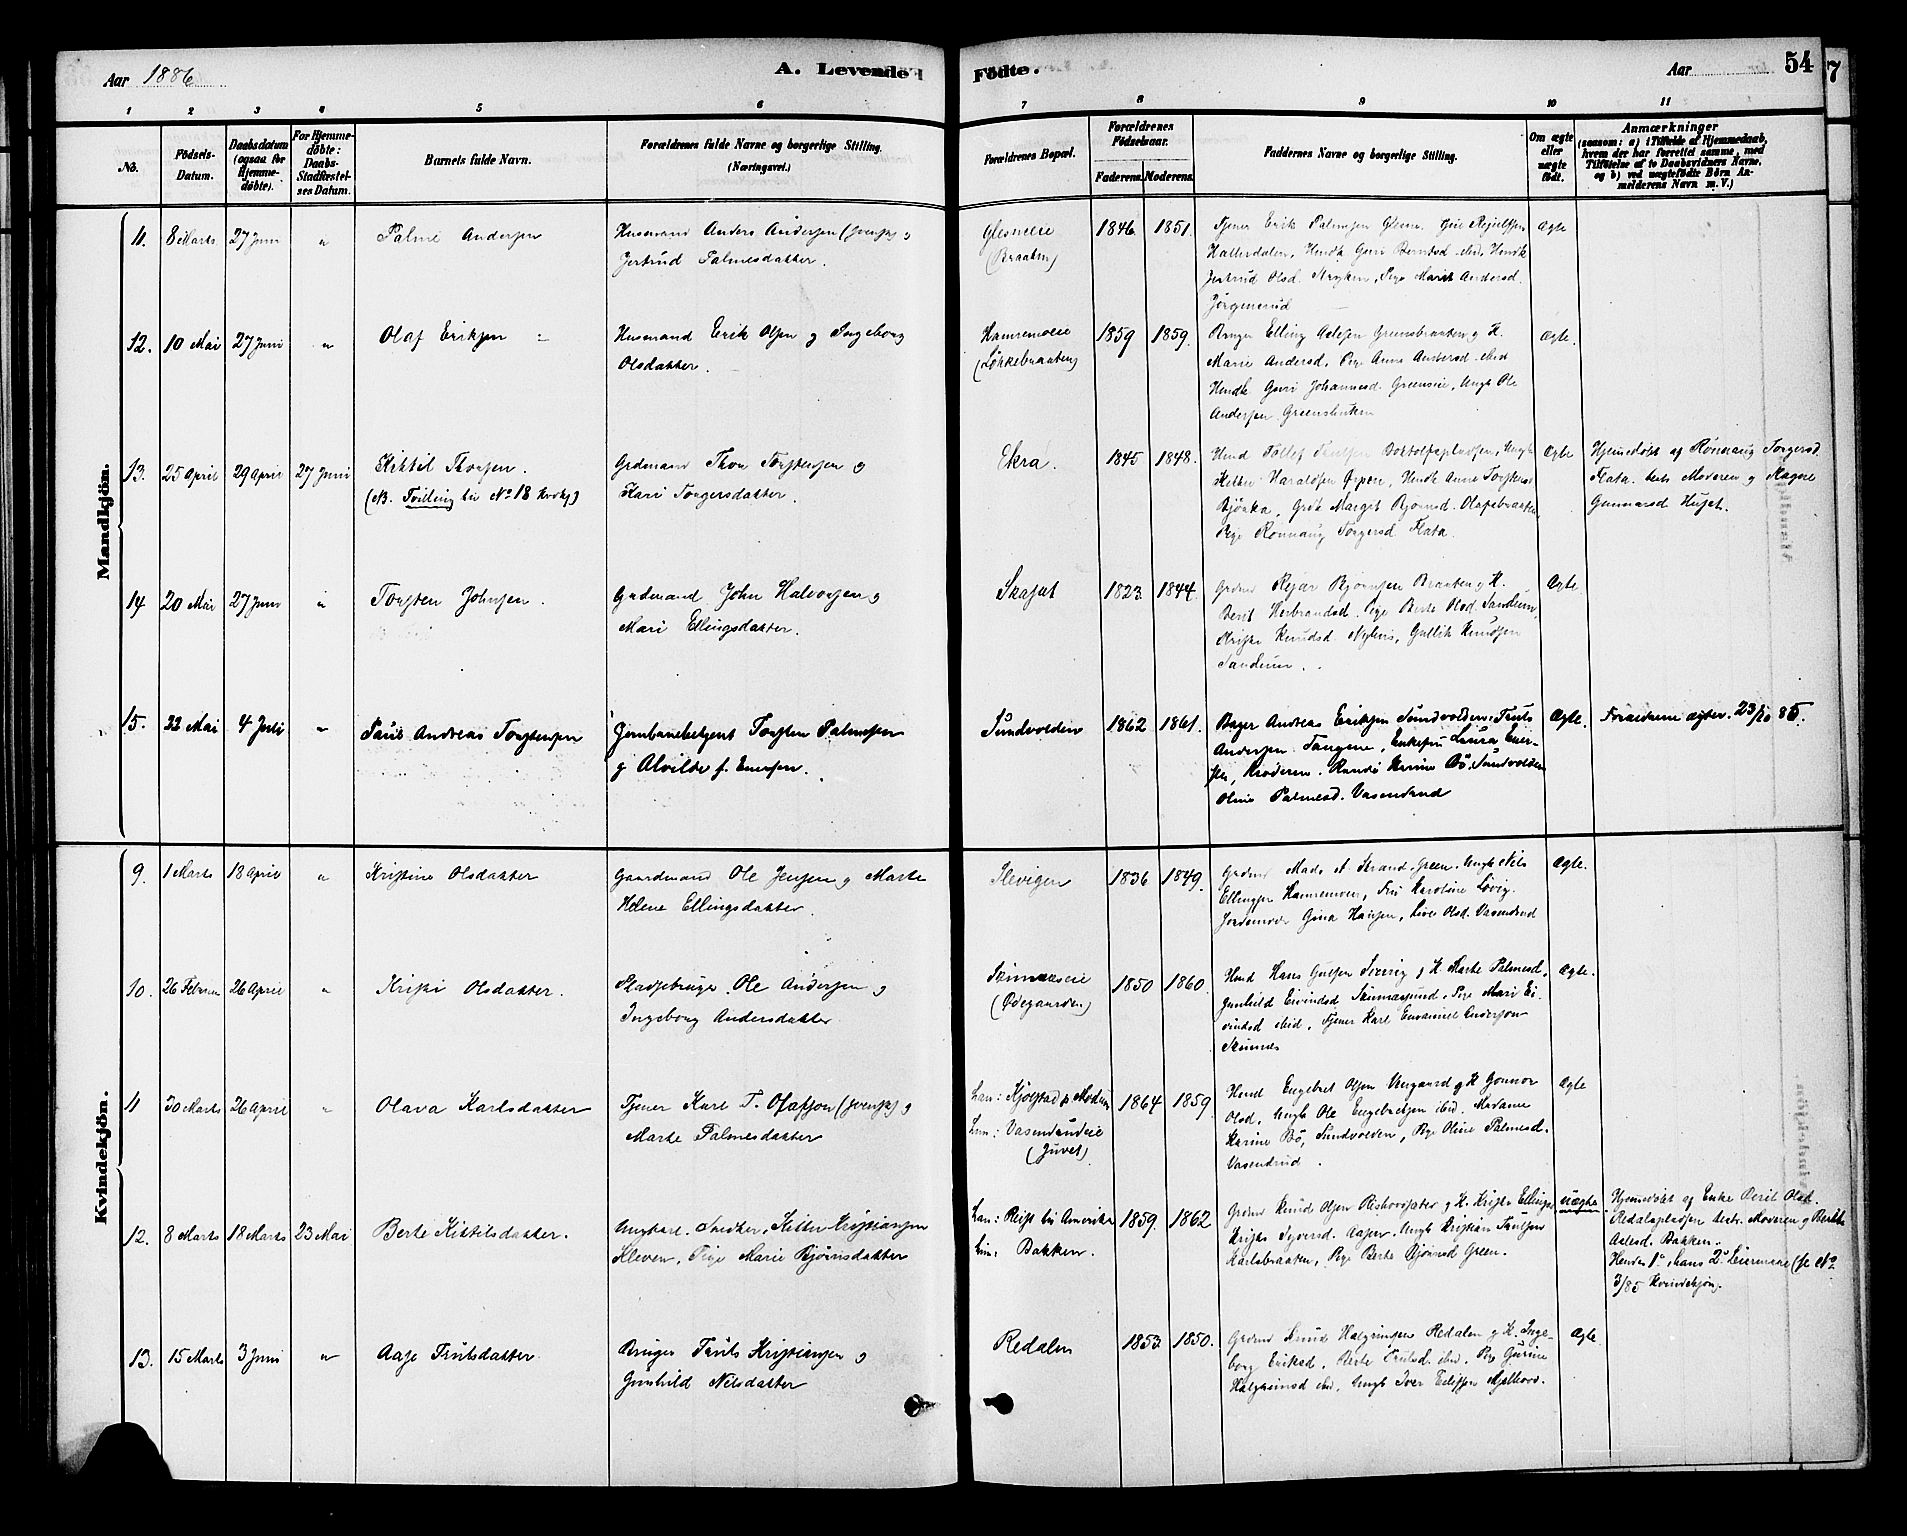 Aar 1886
A. Levende Fødte.
Aar
54
7
1 2 3 4 5 6 7 8 9 10 11
No.
Fødsels-Datum.
Daabsdatum (ogsaa for Hjemmedøbte).
For Hjemmedøbte: Daabs-Stadfæstelses Datum.
Barnets fulde Navn.
Forældrenes fulde Navne og borgerlige Stilling. (Næringsvei.)
Forældrenes Bopæl.
Forældrenes Fødselsaar.
Faderens. Moderens.
Faddernes Navne og borgerlige Stilling.
Om ægte eller uægte født.
Anmærkninger
(saasom: a) i Tilfælde af Hjemmedaab, hvem der har forrettet samme, med Tilføielse af to Daabsvidners Navne, og b) ved uægtefødte Børn Anmelderens Navn m. V.)
Mandkjön.
11. 8 Marts 27 Juni " Palme Andersen
Husmand Anders Andersen (svensk) og
Jertrud Palmesdatter.
Glesneeie
(Braaten)
1846 1851.
Tjener Erik Palmesen Glesne.
Hallesdalen, Hendk Guri Berntsd. ibid, Hendk
Jertrud Olsd. Stryken, Pige Marit Andersd.
Jørgenerud
Ægte
12. 10 Mai 27 Juni " Olaf Eriksen
Husmand Erik Olsen og Ingeborg
Olsdatter.
Hamremoeie
(Løkkebraaten)
1859 1859.
Bruger Elling Grensbraaten og K.
Marie Andersd. Pige Anne Andersd. ibid
Hendk Guri Johannesd. Greenseie, Ungk Ole
Andersen
Ægte.
13. 25 April 29 April 27 Juni Kittil Thorsen.
(NB. Tvilling til No 18 kvdkj)
Grdmand Thor Torstensen og
Kari Torgersdatter.
Ekra.
1845 1848.
Tollef Ungk
Haraldsen Hendk Anne
Bjönka, Margit Bjørnsd. Olafsbraaten
Pige Rönnaug Torgersd Flata.
Ægte
Hjemmedøbt af Rönnaug Torgersd.
Flata. test. Moderen og
Gunnarsd Huset.
14 20 Mai 27 Juni " Torsten Johnsen.
Grdmand John Halvorsen og
Mari Ellingsdatter.
Skajat
1823. 1844.
Bjørnsen Braaten og K.
Berit Herbrandsd. Pige Berte Olsd. Sanderen,
Knudsd. Gullik Knudsen
Sanderen.
Ægte.
15. 22 Mai 4 Juli " Paul Andreas Torstensen
Jernbanebetjent Torsten Palmesen
og Alvilde f. Enersen.
Sundvolden
1862 1861.
Bager Andreas Eriksen Sundvolden, Truls
Andersen Tangene, Enkefru Laura Ener-
sen, Krøderen. Karine Bö, Sundvolden
Oline Palmesd. Vasendrud
Ægte.
Forældrene ægtev. 23/10 85.
Kvindekjön.
9. 1 Marts 18 April " Kristine Olsdatter
Gaardmand Ole Jensen og Marte
Helene Ellingsdatter.
Slevigen
1836 1849.
Grdmd Mads A. Strand, Green. Ungk Nils
Ellingsen Hamremoen, Fru Karoline Løvig.
Jordemoder Gina Hansen, Live Olsd. Vasendrud
Ægte.
10. 26 Februar 26 April " Kristi Olsdatter.
Pladsbruger Ole Andersen og
Ingeborg Andersdatter.
Skinnæseie
(Ødegaarden)
1850 1860.
Hans Gulsen og K. Marte Palmesd.
Gunhild Eivindsd Pige Mari Ei-
vindsd ibid, Tjener Karl Emanuel Anderson
Skinnes
Ægte.
11 30 Marts 26 April " Olava Karlsdatter
Tjener Karl T. Olafson (svensk) og
Marte Palmesdatter
Han: Kjølstad p. Modum
Hun: Vasendrudeie
(Juvet)
1864 1859
Engebret Olsen og K Gonnor
Olsd, Ungk Ole Engebretsen ibid. Madame
Karine Bö, Sundvolden, Pige Oline Palmesd.
Vasendrud.
Ægte
12. 8 Marts 18 Marts 23 Mai Berte Kittilsdatter.
Ungkarl. Snedker, Kittil Kristiansen
Kleven. Pige Marie Bjørnsdatter
Han: Reist til Amerika
Hun: Bakken.
1859. 1862
Grdmd Knud Olsen og K. Kristi Ellingsd
Kristi Syversd. Ungk Kristian Trulsen
Karlsbraaten, Pige Berte Bjørnsd Green.
uægte.
Hjemmedøbt af Enke Berit Olsd.
Redalspladsen test. Moderen og Berthe
Bakken.
Hendes 1ste, hans 2det Leiermaal (se No
3/85 Kvindekjøn).
13. 15 Marts 3 Juni " Aase Trulsdatter
Bruger Truls Kristiansen og
Gunhild Nilsdatter
Redalen
1853 1850.
Grdmd Knud Halgrimsen Redalen og K. Inge-
borg Eriksd. Berte Trulsd. ibid. Pige Gurine
Halgrimsd ibid, Ungk Iver
Ægte.